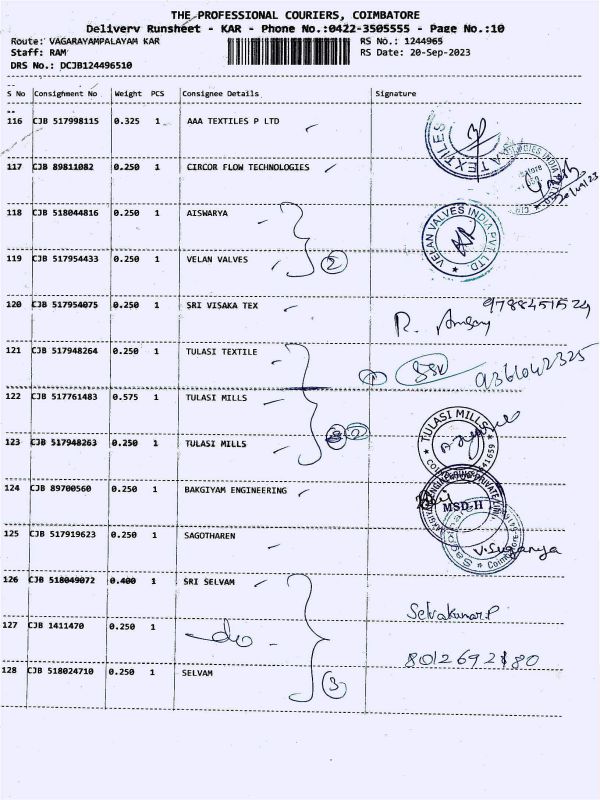 THE PROFESSIONAL COURIERS, COIMBATORE
Delivery Runsheet - KAR - Phone No.:0422-3505555 - Page No.:10
Route: VAGARAYAMPALAYAM KAR RS No.: 1244965
Staff: RAM RS Date: 20-Sep-2023
DRS No.: DCJB124496510
S No Consignment No Weight PCS Consignee Details Signature
116 CJB 517998115 0.325 1 AAA TEXTILES P LTD
117 CJB 89811082 0.250 1 CIRCOR FLOW TECHNOLOGIES
118 CJB 518044816 0.250 1 AISWARYA
119 CJB 517954433 0.250 1 VELAN VALVES 2
VELAN VALVES INDIA PVT. LTD.
120 CJB 517954075 0.250 1 SRI VISAKA TEX
121 CJB 517948264 0.250 1 TULASI TEXTILE
122 CJB 517761483 0.575 1 TULASI MILLS
123 CJB 517948263 0.250 1 TULASI MILLS
TULASI MILLS
124 CJB 89700560 0.250 1 BAKGIYAM ENGINEERING
MSD-H
125 CJB 517919623 0.250 1 SAGOTHAREN
V. Suganya
126 CJB 518049072 0.400 1 SRI SELVAM
Selvakumar.P
127 CJB 1411470 0.250 1 do
128 CJB 518024710 0.250 1 SELVAM 3